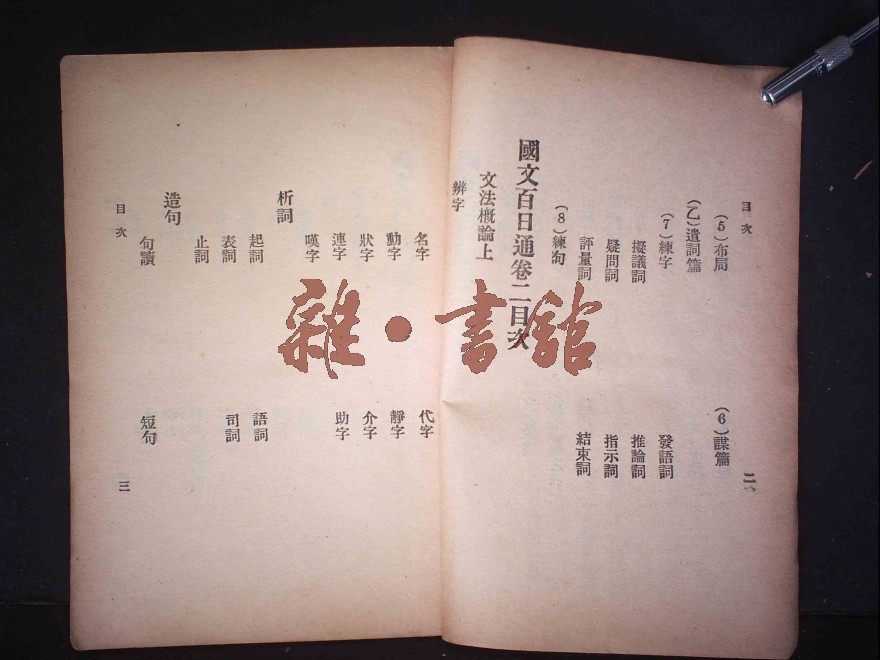 目次 二
(5)布局 (6)謀篇
(乙)遣詞篇
(7)練字 發語詞
擬議詞 推論詞
疑問詞 指示詞
評量詞 結束詞
(8)練句
國文百日通卷二目次
文法概論上
辨字
名字 代字
動字 靜字
狀字 介字
連字 助字
嘆字
析詞
起詞 語詞
表詞 司詞
止詞
造句
句讀 短句
目次 三
雜·書館